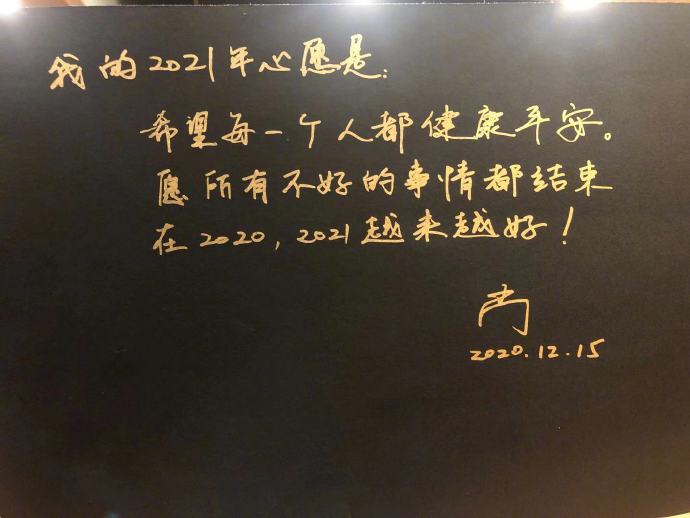 我的2021年心愿是:
希望每一个人都健康平安。
愿所有不好的事情都结束
在2020,2021越来越好!
2020.12.15